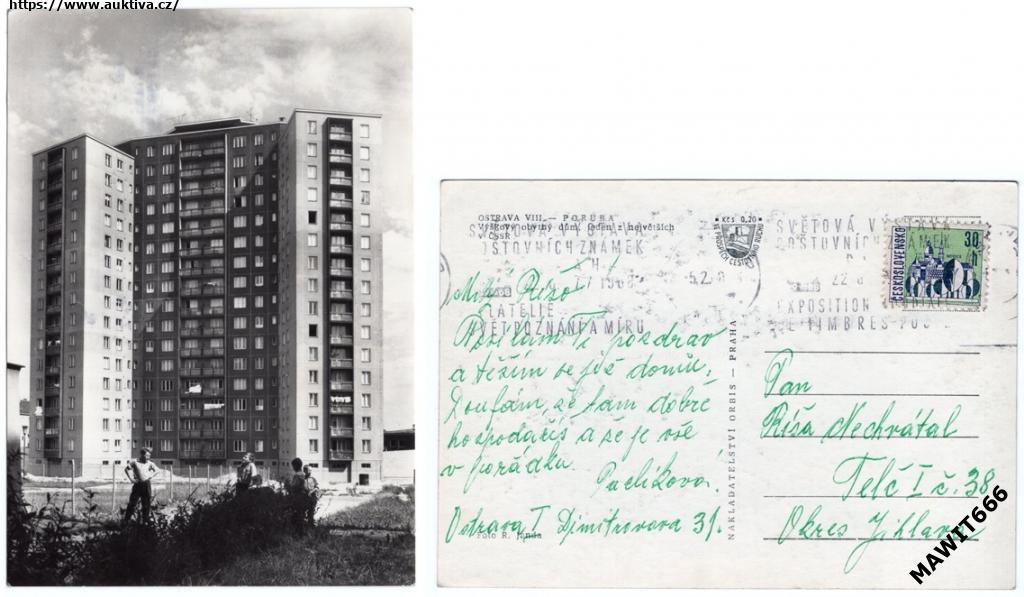 https://www.auktiva.cz/
OSTRAVA VIII. — PORUBA
Výškový obytný dům, jeden z největších
v ČSSR
Kčs 0,20
SVĚTOVÁ
POŠTOVNÍCH ZNÁMEK
1968
FILATELIE
SVĚT POZNÁNÍ A MÍRU
5.2.
SVĚTOVÁ
POŠTOVNÍCH
22
EXPOSITION
DE TIMBRES
ČESKOSLOVENSKO
30 h
Milý Ríšo!
Posílám Ti pozdrav
a těším se již domů.
Doufám, že tam dobře
hospodaříš a že je vše
v pořádku.
Pavlíková.
Ostrava I Dimitrovova 31.
Foto R. Janda
NAKLADATELSTVÍ ORBIS — PRAHA
Pan
Ríša Nechvátal
Telč I č. 38
Okres Jihlava
MAWIT666